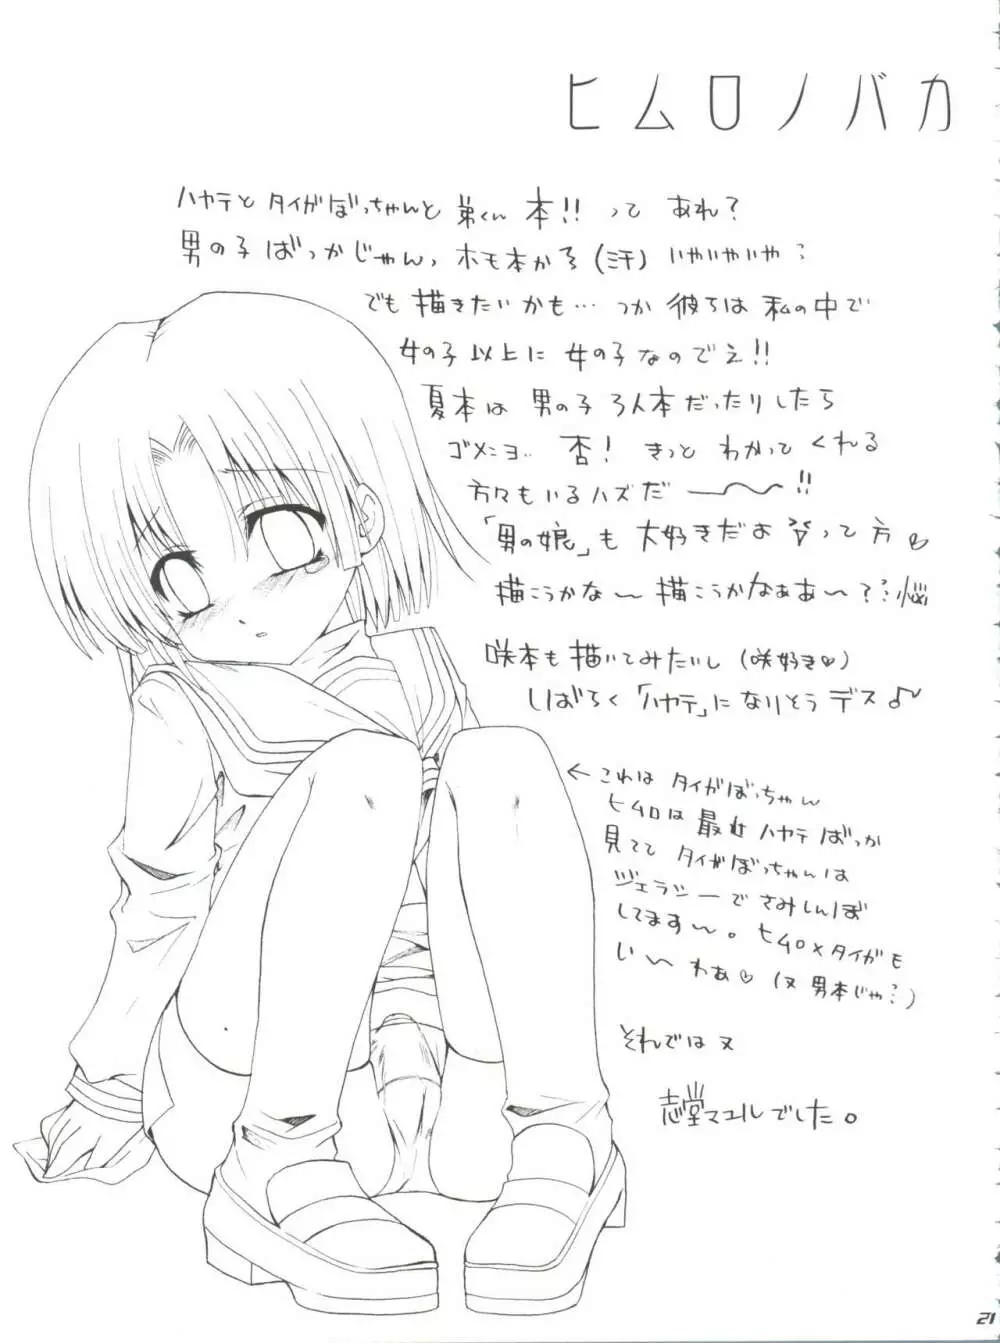 ヒムロノバカ
ハヤテと タイガぼっちゃんと 弟くん 本!! って あれ?
男の子 ばっかじゃんっ ホモ本かそ (汗) いやいやいや…
でも 描きたいかも… つか 彼らは 私の中で
女の子以上に 女の子なのでえ!!
夏本は 男の子 3人本だったりしたら
ゴメニヨ.. 否! きっと わかって くれる
方々もいるハズだ 〜〜!!
「男の娘」も 大好きだよ って方♡
描こうかな〜 描こうかなぁあ〜?… 悩
咲本も 描いてみたいし (咲好き♡)
しばらく 「ハヤテ」に なりそう デス♪
← これは タイガぼっちゃん
ヒムロは 最近 ハヤテ ばっか
見てて タイガぼっちゃんは
ジェラシーで さみしんぼ
してます〜。 ヒムロ×タイガも
い〜 わぁ♡ (又 男本じゃ…)
それでは 又
志堂マユル でした。
21